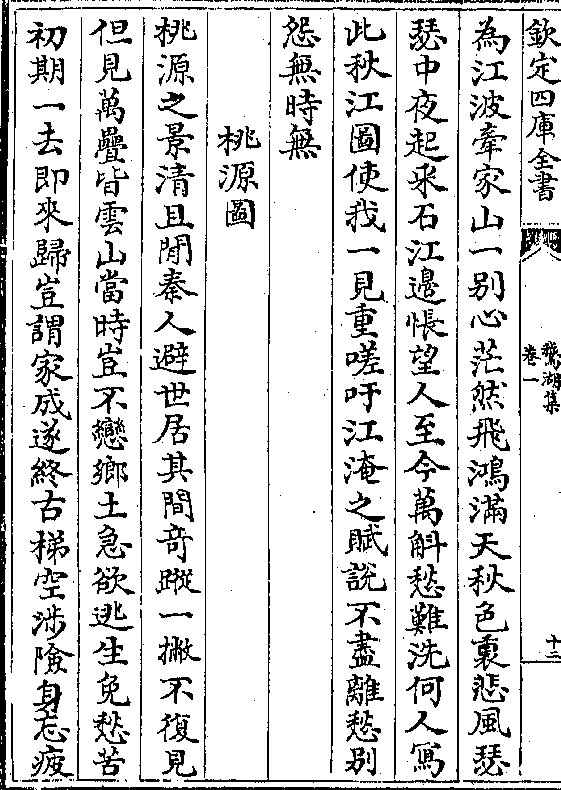 欽定四庫全書
鵞湖集
卷一
十二
為江波牽家山一别心茫然飛鴻滿天秋色裏悲風瑟
瑟中夜起采石江邊悵望人至今萬斛愁難洗何人寫
此秋江圖使我一見重嗟吁江淹之賦說不盡離愁别
怨無時無
桃源圖
桃源之景清且閒秦人避世居其間竒蹤一撇不復見
但見萬疊皆雲山當時豈不戀鄉土急欲逃生免愁苦
初期一去即來歸豈謂家成遂終古梯空涉險身忘疲